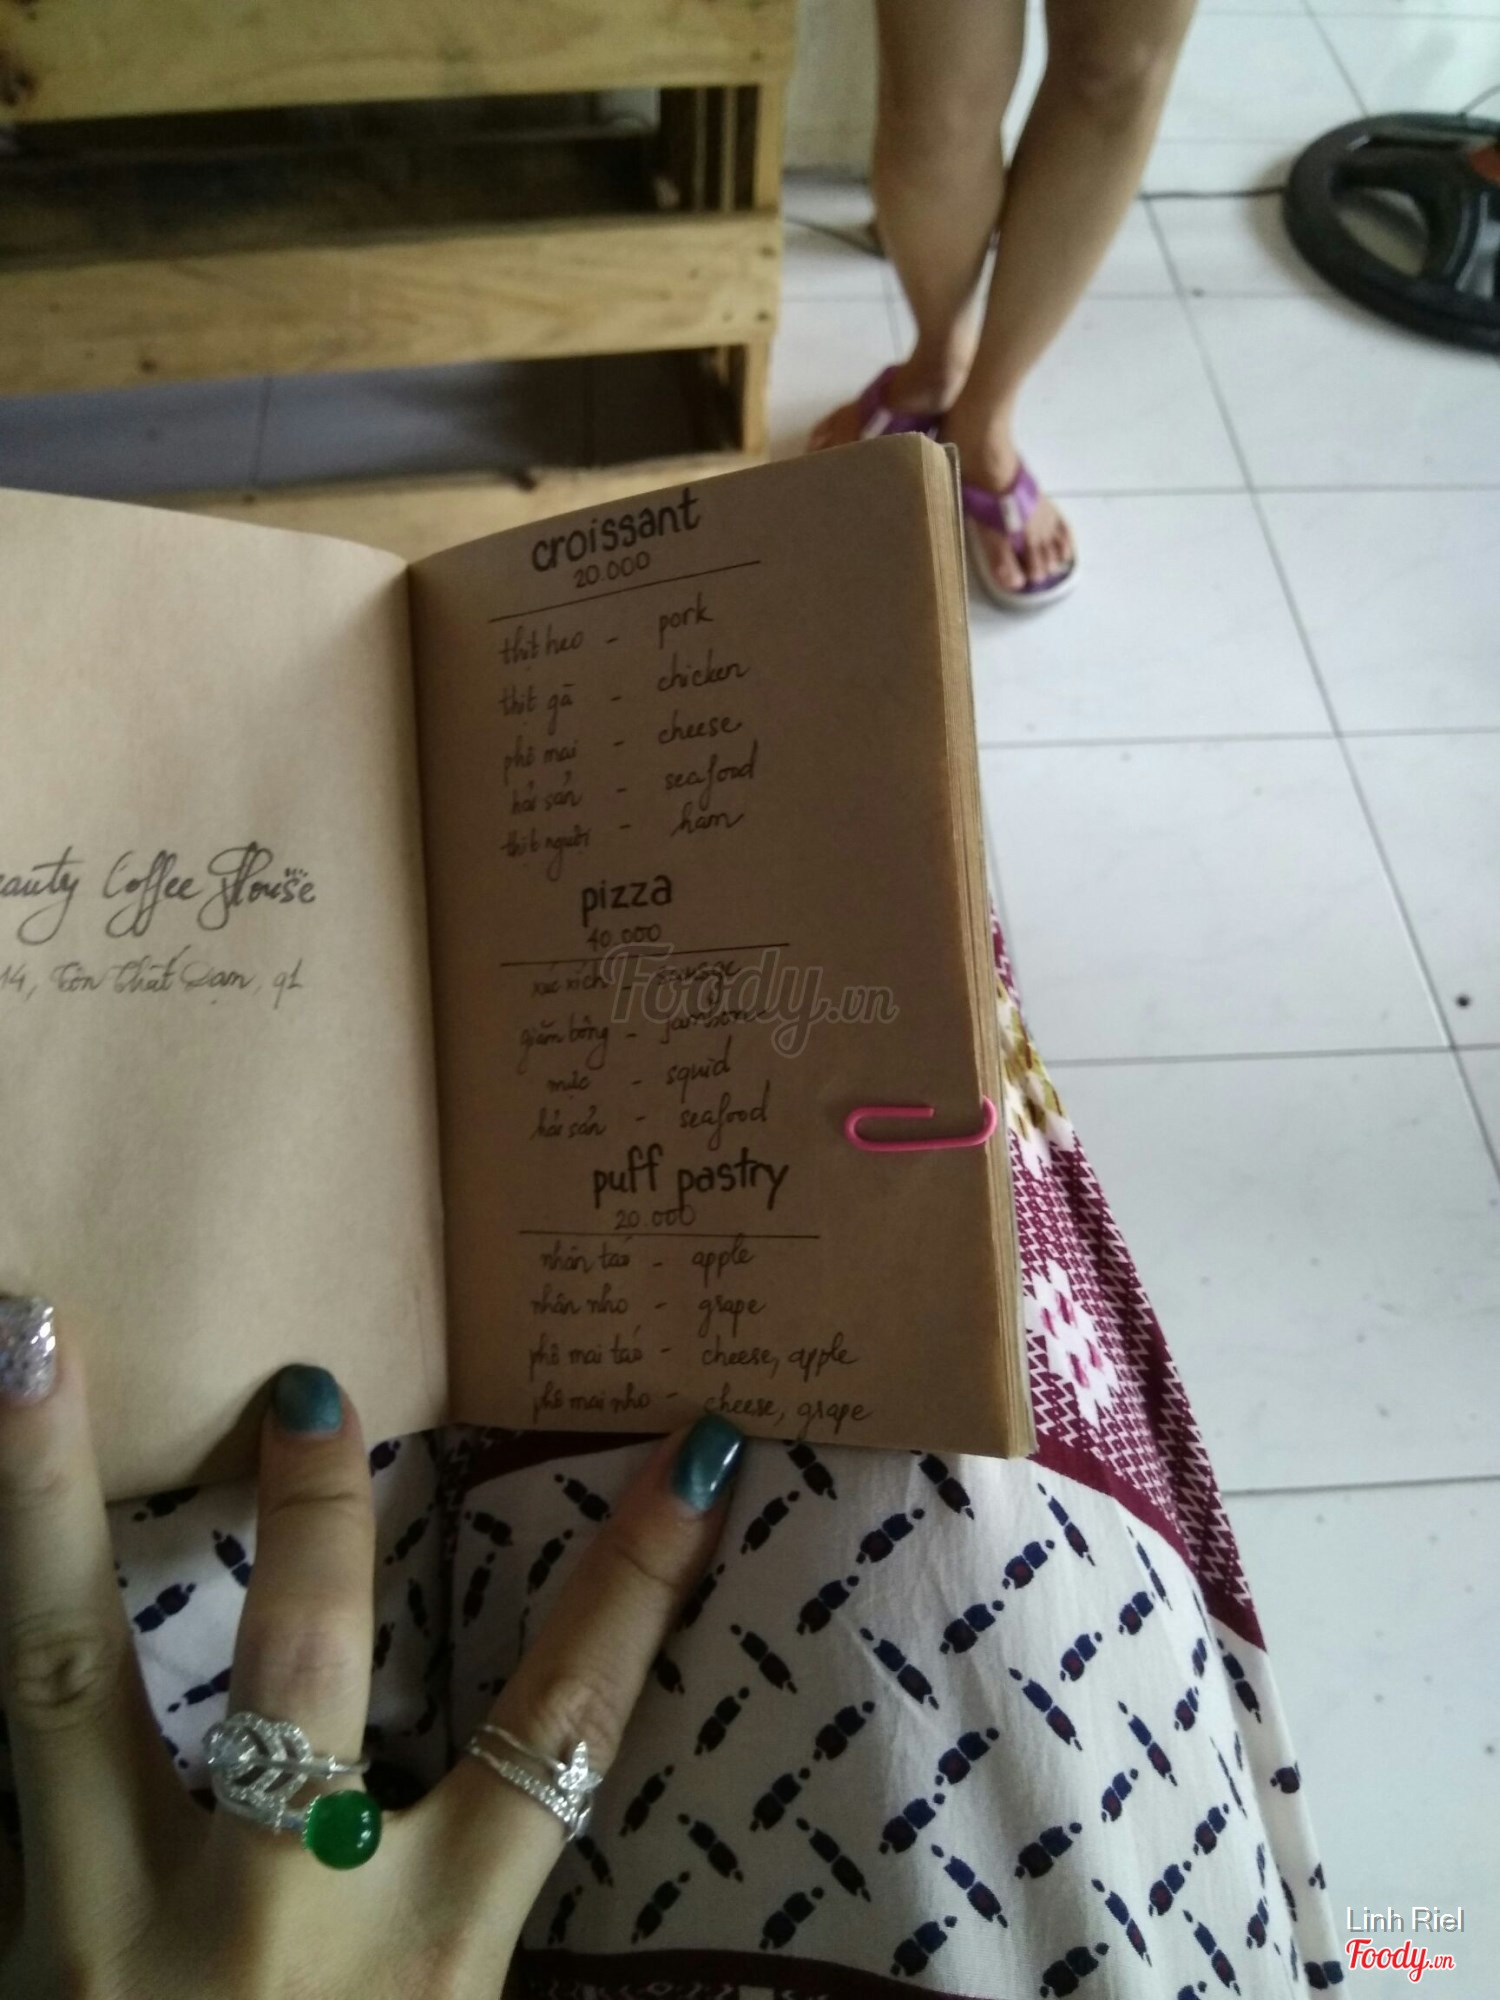 eauty Coffee House
14, Tôn Thất Đạm, q1
croissant
20.000
thịt heo - pork
thịt gà - chicken
phô mai - cheese
hải sản - seafood
thịt nguội - ham
pizza
40.000
xúc xích - sausge
giăm bông - jambon
mực - squid
hải sản - seafood
puff pastry
20.000
nhân táo - apple
nhân nho - grape
phô mai táo - cheese, apple
phô mai nho - cheese, grape
Foody.vn
Linh Riel
Foody.vn